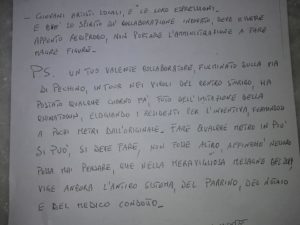 - GIOVANI ARTISTI LOCALI, E LE LORO ESPRESSIONI.
E ESSE LO SPIRITO DI COLLABORAZIONE INVOCATO, DEVE ESSERE
APPUNTO RECIPROCO, NON PORTANDO L'AMMINISTRAZIONE A FARE
MAGRE FIGURE.
PS. UN TUO VALENTE COLLABORATORE, FULMINATO SULLA VIA
DI PECHINO, IN TOUR NEI VICOLI DEL CENTRO STORICO, HA
POSTATO QUALCHE GIORNO FA, FOTO DELL'IMITAZIONE DELLA
CHINATOWN, ELOGIANDO I RESIDENTI PER L'INVENTIVA, FERMANDOSI
A POCHI METRI DALL'ORIGINALE. FARE QUALCHE METRO IN PIÙ
SI PUÒ, SI DEVE FARE, NON FOSSE ALTRO AFFINCHÈ NESSUNO
POSSA MAI PENSARE, CHE NELLA MERAVIGLIOSA MESAGNE DEL
VIGE ANCORA L'ANTICO SISTEMA, DEL PARRINO, DEL NOTAIO
E DEL MEDICO CONDOTTO.